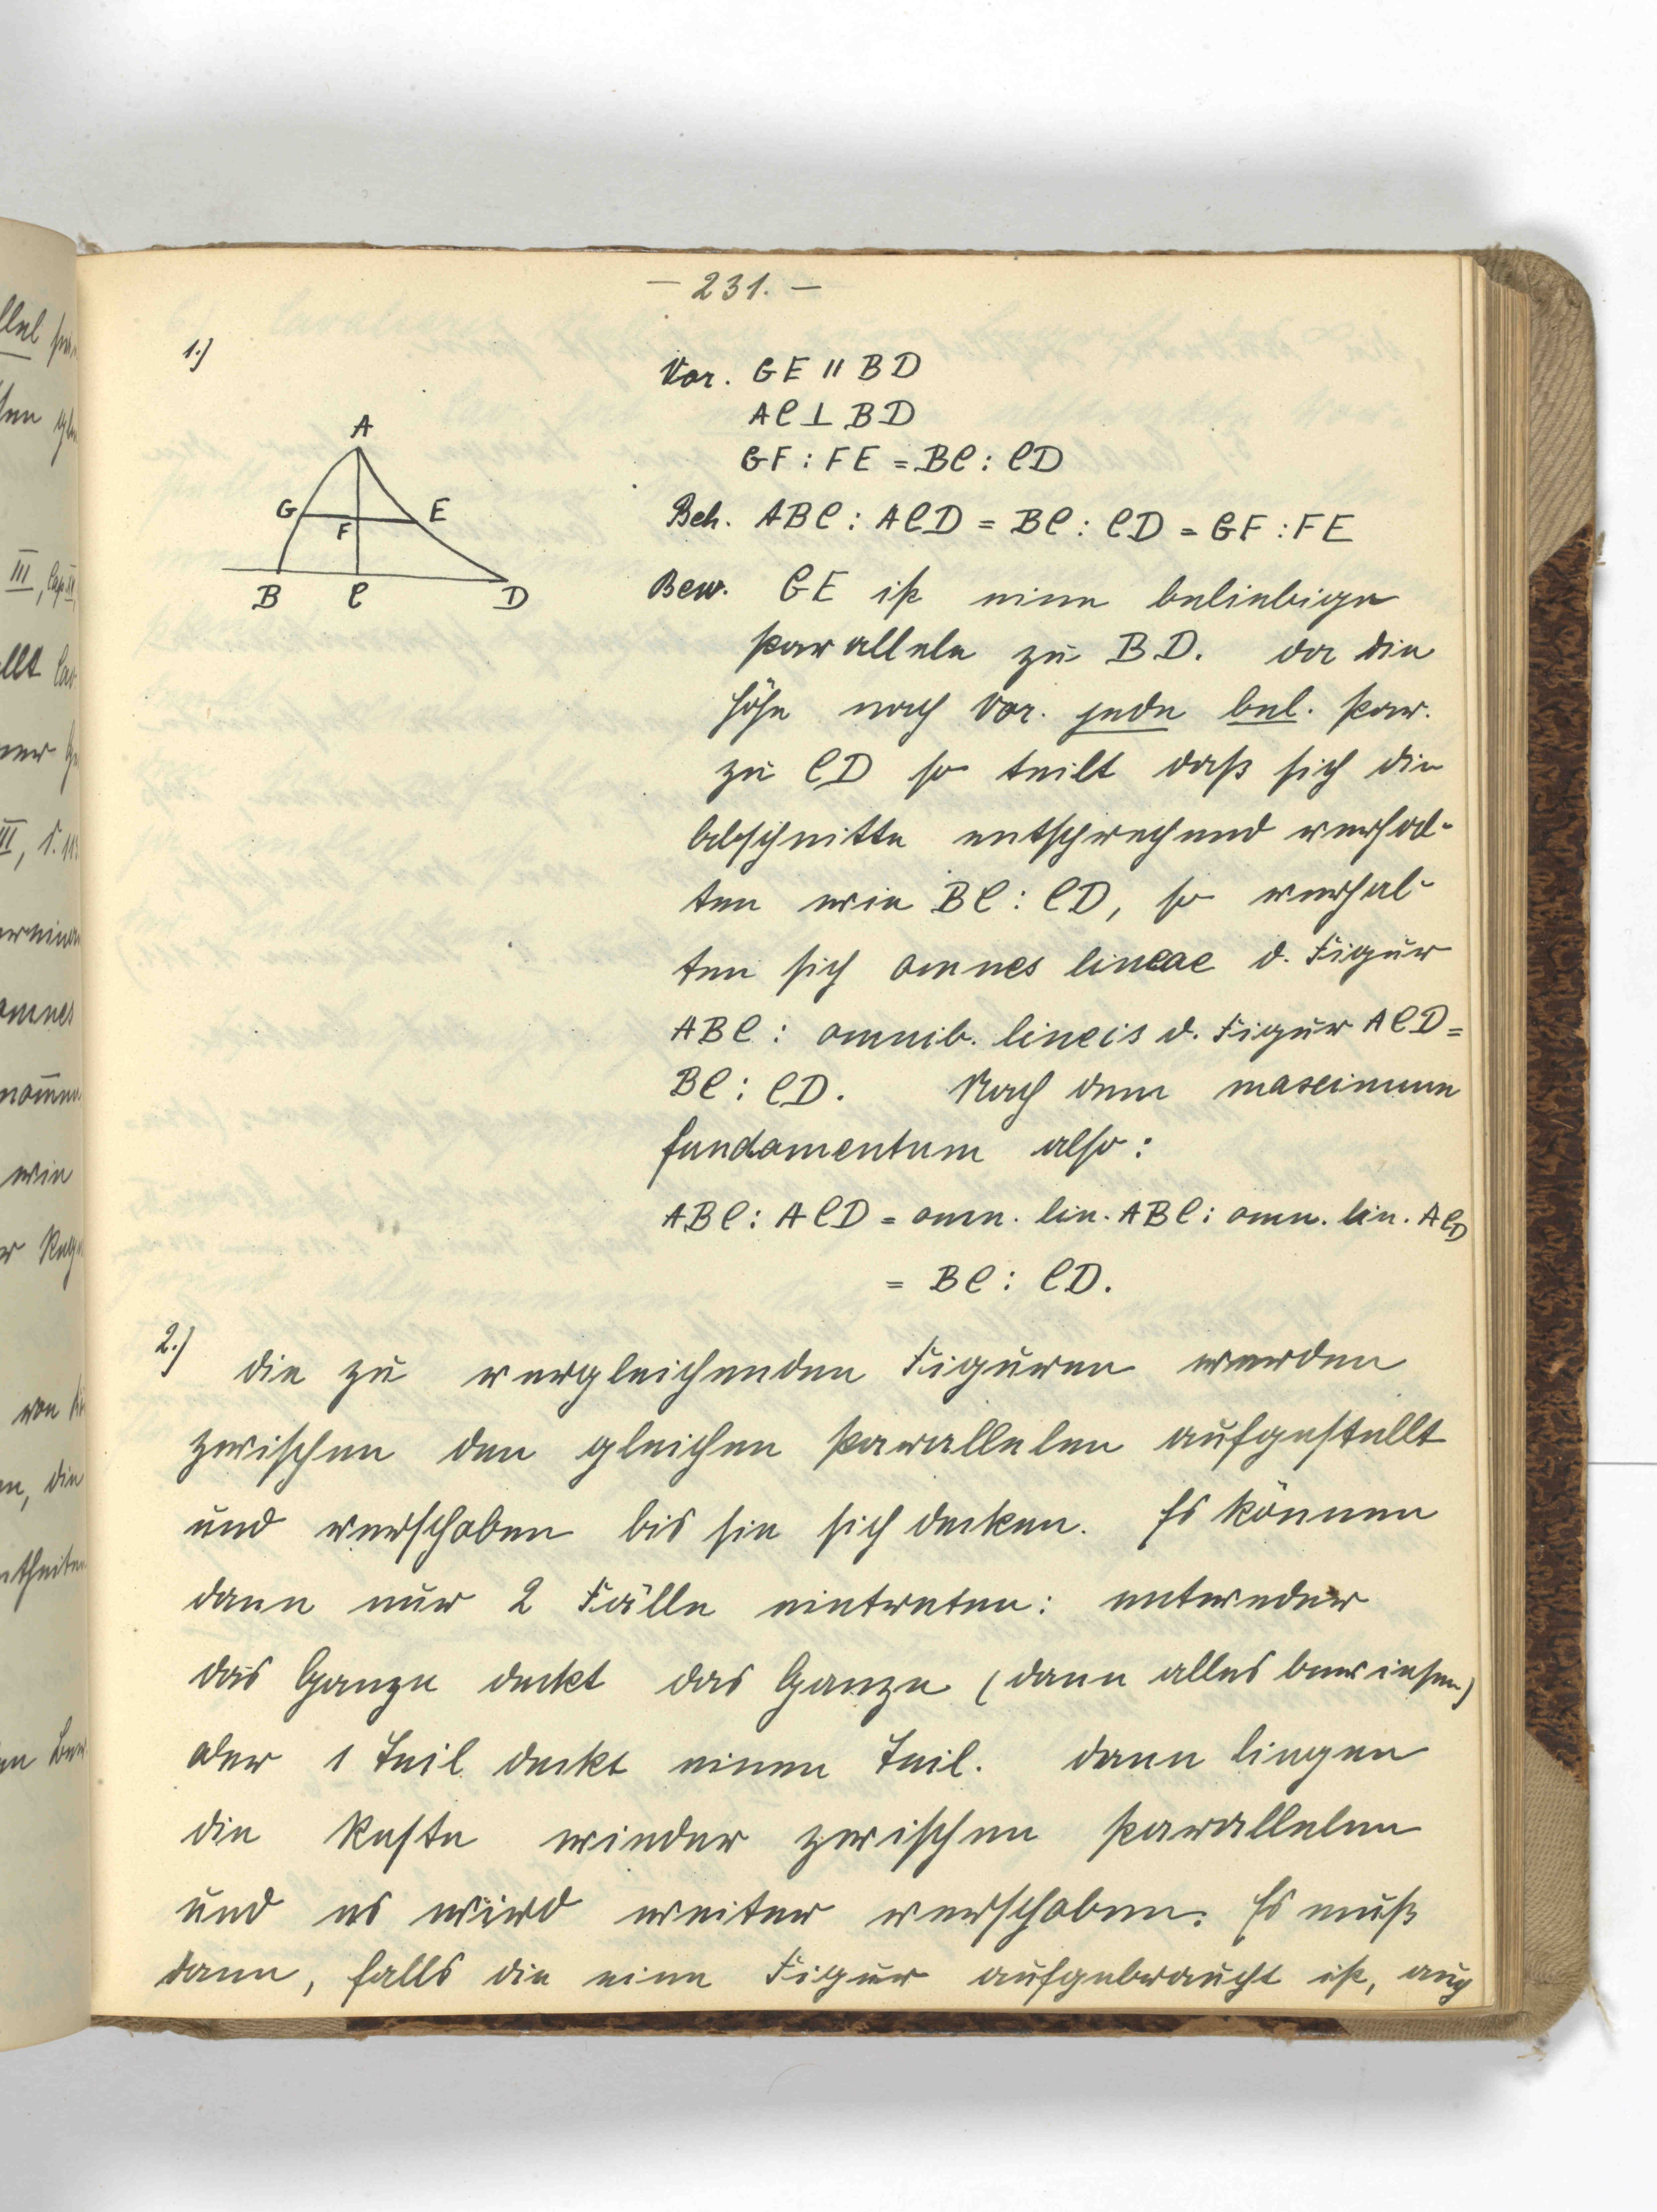 — 231. —
1.)
Vor. GE || BD
AC ⊥ BD
GF : FE = BC : CD
Beh. ABC : ACD = BC : CD = GF : FE
A
G
E
F
B
C
D
Bew. GE ist eine beliebige
Parallele zu BD. Da die
Höhe nach Vor. jede bel. Par.
zu CD so teilt daß sich die
Abschnitte entsprechend verhal-
ten wie BC : CD, so verhal-
ten sich omnes lineae d. Figur
ABC : omnib. lineis d. Figur ACD =
BC : CD. Nach dem maximum
fundamentum also:
ABC : ACD = omn. lin. ABC : omn. lin. ACD
= BC : CD.
2.) Die zu vergleichenden Figuren werden
zwischen den gleichen Parallelen aufgestellt
und verschoben bis sie sich decken. Es können
dann nur 2 Fälle eintreten: entweder
das Ganze deckt das Ganze (dann alles bewiesen)
oder 1 Teil deckt einen Teil. Dann liegen
die Reste wieder zwischen Parallelen
und es wird weiter verschoben. Es muß
dann, falls die eine Figur aufgebraucht ist, auch